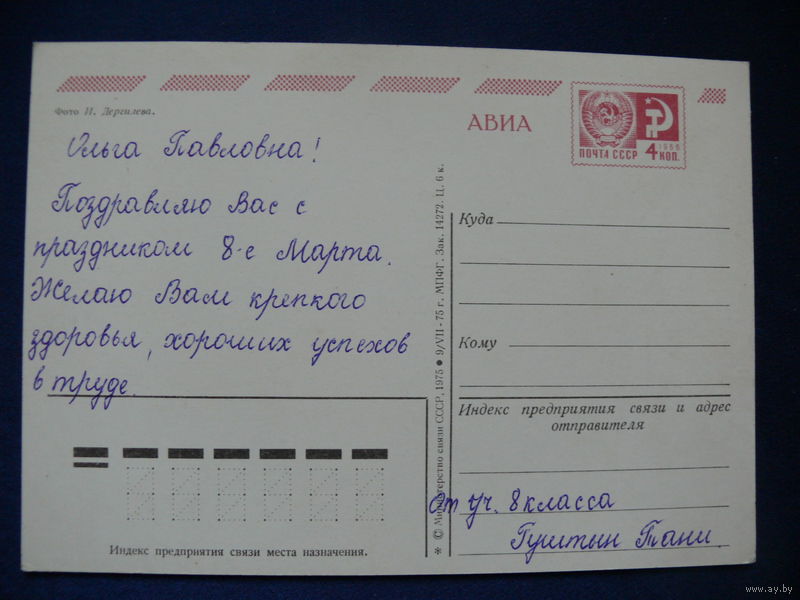 Фото И. Дергилева.
АВИА
ПОЧТА СССР
1966
4 КОП.
Ольга Павловна!
Поздравляю Вас с
праздником 8-е Марта.
Желаю Вам крепкого
здоровья, хороших успехов
в труде.
Индекс предприятия связи места назначения.
* © Министерство связи СССР, 1975 ● 9/VII - 75 г. МПФГ. Зак. 14272. Ц. 6 к.
Куда
Кому
Индекс предприятия связи и адрес
отправителя
от уч. 8 класса
Гуштын Тани.
www.ay.by